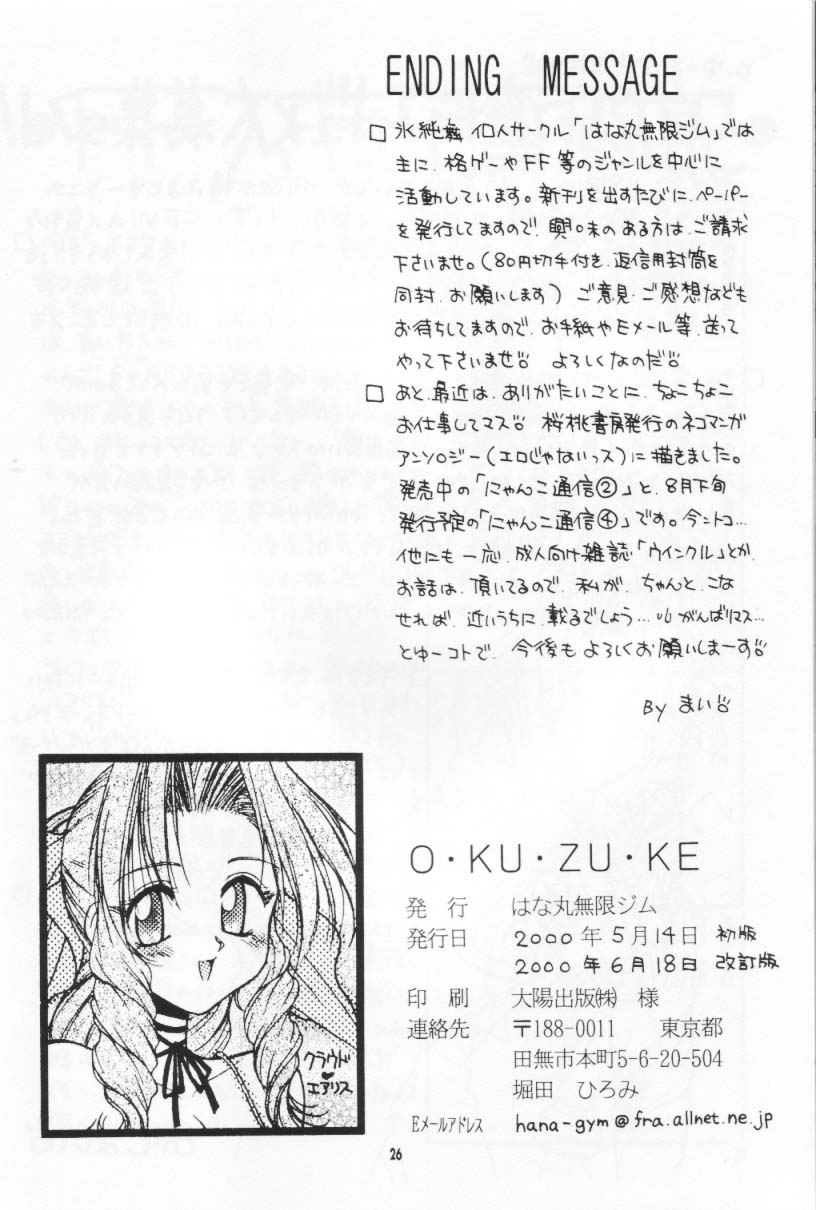 ENDING MESSAGE
□ 氷純舞 個人サークル「はな丸無限ジム」では
主に、格ゲーやFF等のジャンルを中心に
活動しています。新刊を出すたびに、ペーパー
を発行してますので、興味のある方は、ご請求
下さいませ。(80円切手付き、返信用封筒を
同封、お願いします) ご意見・ご感想なども
お待ちしてますので、お手紙やEメール等、送って
やって下さいませ よろしくなのだ
□ あと、最近は、ありがたいことに、ちょこちょこ
お仕事してマス 桜桃書房発行のネコマンガ
アンソロジー(エロじゃないっス)に描きました。
発売中の「にゃんこ通信②」と、8月下旬
発行予定の「にゃんこ通信④」です。今ントコ…
他にも一応、成人向け雑誌「ウインクル」とか、
お話は、頂いてるので、私が、ちゃんと、こな
せれば、近いうちに、載るでしょう… がんばりマス…
とゆーコトで、今後もよろしくお願いしまーす
By まい
クラウド
♥
エアリス
O・KU・ZU・KE
発 行 はな丸無限ジム
発行日 2000年5月14日 初版
2000年6月18日 改訂版
印 刷 大陽出版㈱ 様
連絡先 〒188-0011 東京都
田無市本町5-6-20-504
堀田 ひろみ
Eメールアドレス hana-gym@fra.allnet.ne.jp
26